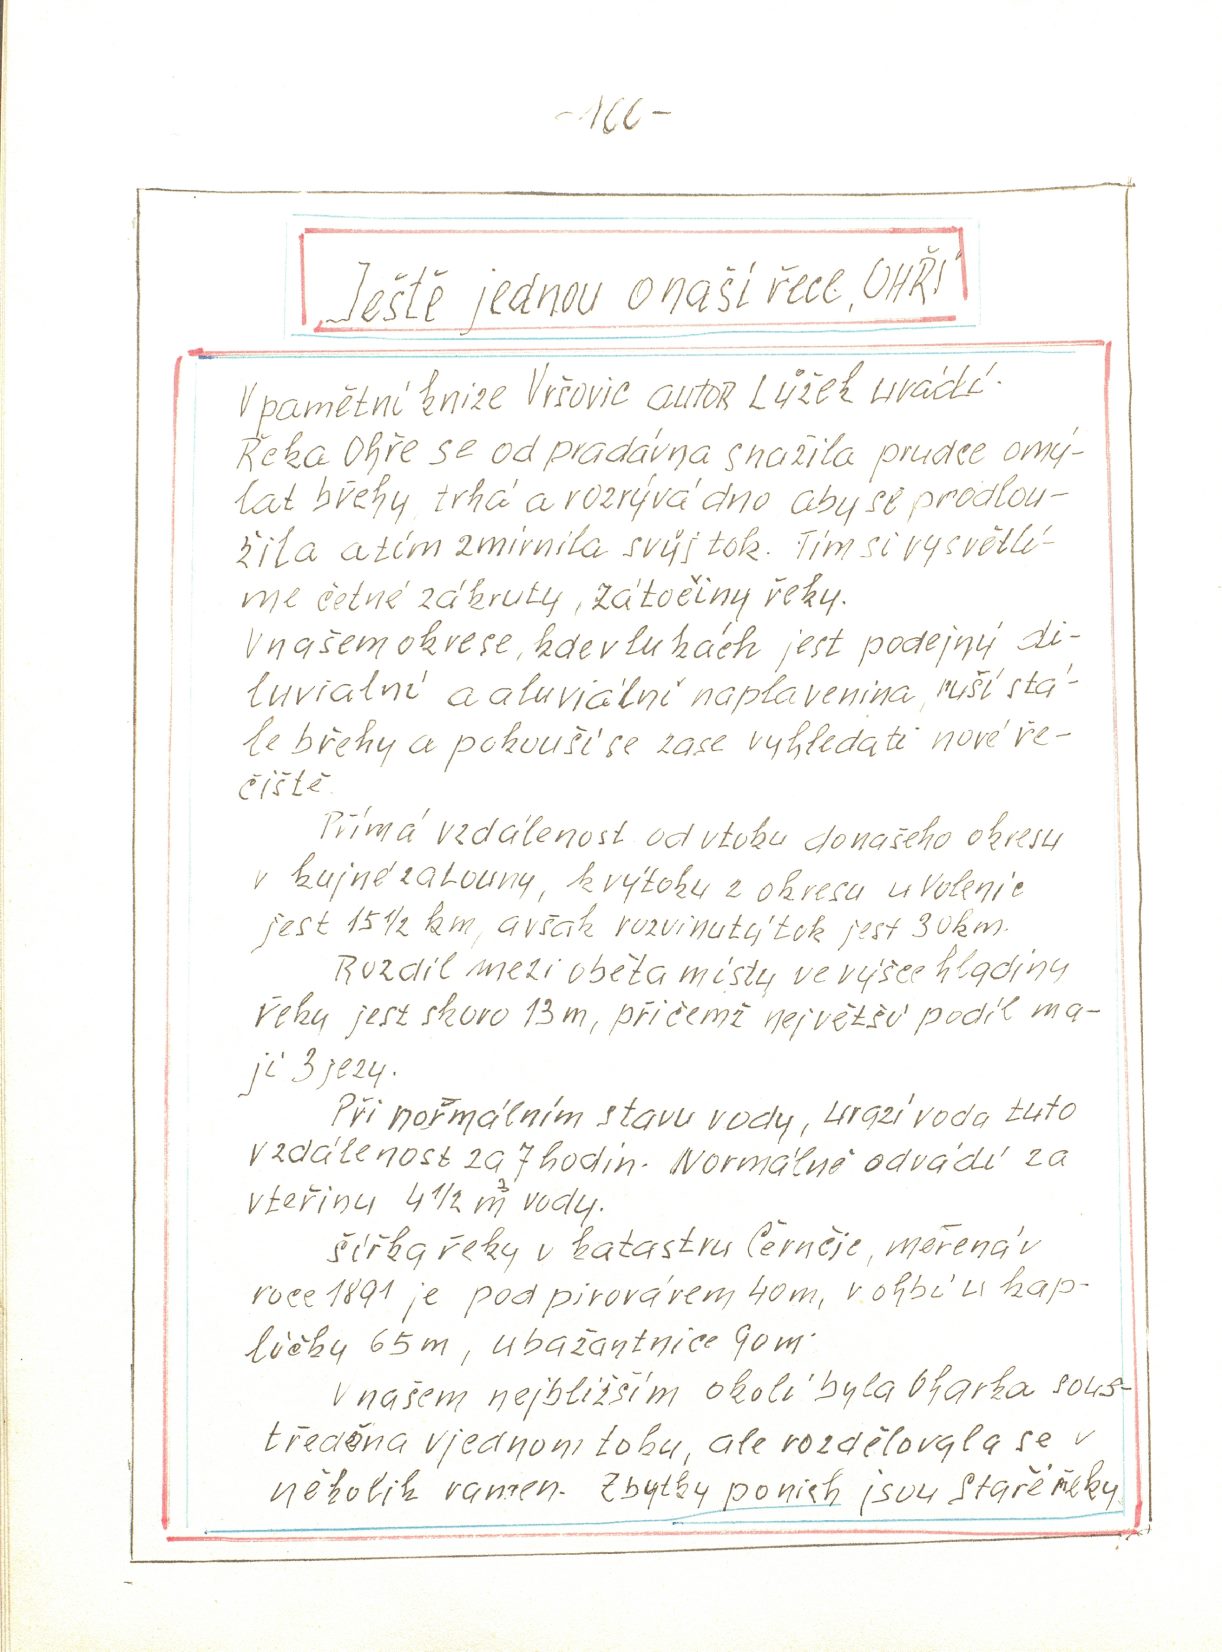 -166-
Ještě jednou o naší řece „OHŘI“
V pamětní knize Vršovic autor Lůžek uvádí.
Řeka Ohře se od pradávna snažila prudce omý-
lat břehy, trhá a rozrývá dno aby se prodlou-
žila a tím zmírnila svůj tok. Tím si vysvětlí-
me četné zákruty, zátočiny řeky.
V našem okrese, kde v lukách jest podejný di-
luvialní a aluviální naplavenina, ruší stá-
le břehy a pokouší se zase vyhledati nové ře-
čiště.
Přímá vzdálenost od vtoku do našeho okresu
v kujné za Louny, k výtoku z okresu u Volenic
jest 15 1/2 km, avšak rozvinutý tok jest 30 km.
Rozdíl mezi oběta místy ve výšce hladiny
řeky jest skoro 13 m, přičemž největší podíl ma-
jí 3 jezy.
Při normálním stavu vody, urazí voda tuto
vzdálenost za 7 hodin. Normálně odvádí za
vteřinu 4 1/2 m³ vody.
Šířka řeky v katastru Černčic, měřená v
roce 1891 je pod pivovárem 40 m, v ohbí u kap-
ličky 65 m, u bažantnice 90 m.
V našem nejbližším okolí byla Oharka sous-
tředěna v jednom toku, ale rozdělovala se v
několik ramen. Zbytky po nich jsou Staré řeky.